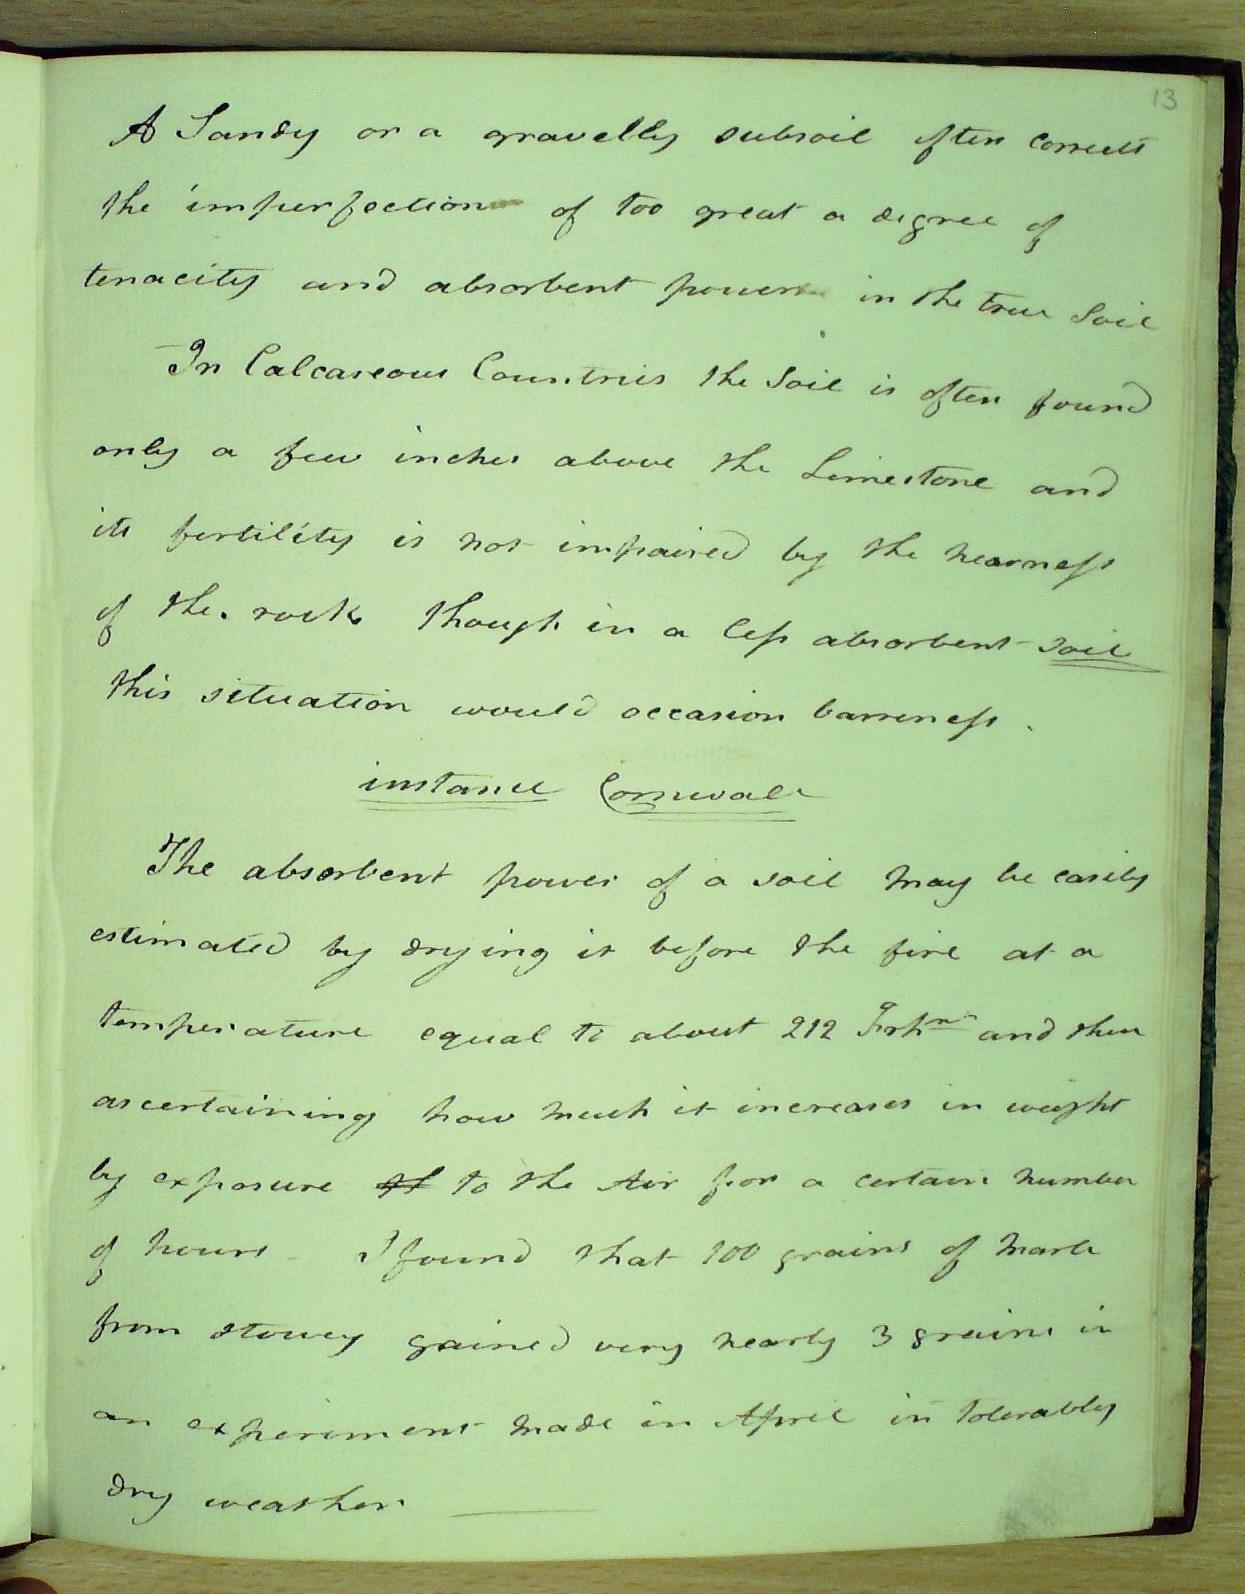 13
A Sandy or a gravelly subsoil often corrects
the imperfection of too great a degree of
tenacity and absorbent power in the true Soil
In Calcareous Countries the Soil is often found
only a few inches above the Limestone and
its fertility is not impaired by the nearness
of the rock though in a less absorbent soil
this situation would occasion barreness.
instance Cornwall
The absorbent power of a soil may be easily
estimated by drying it before the fire at a
temperature equal to about 212 and then
ascertaining how much it increases in weight
by exposure to the Air for a certain number
of hours I found that 100 grains of Marle
from Stowey gained very nearly 3 grains in
an experiment made in April in tolerably
dry weather